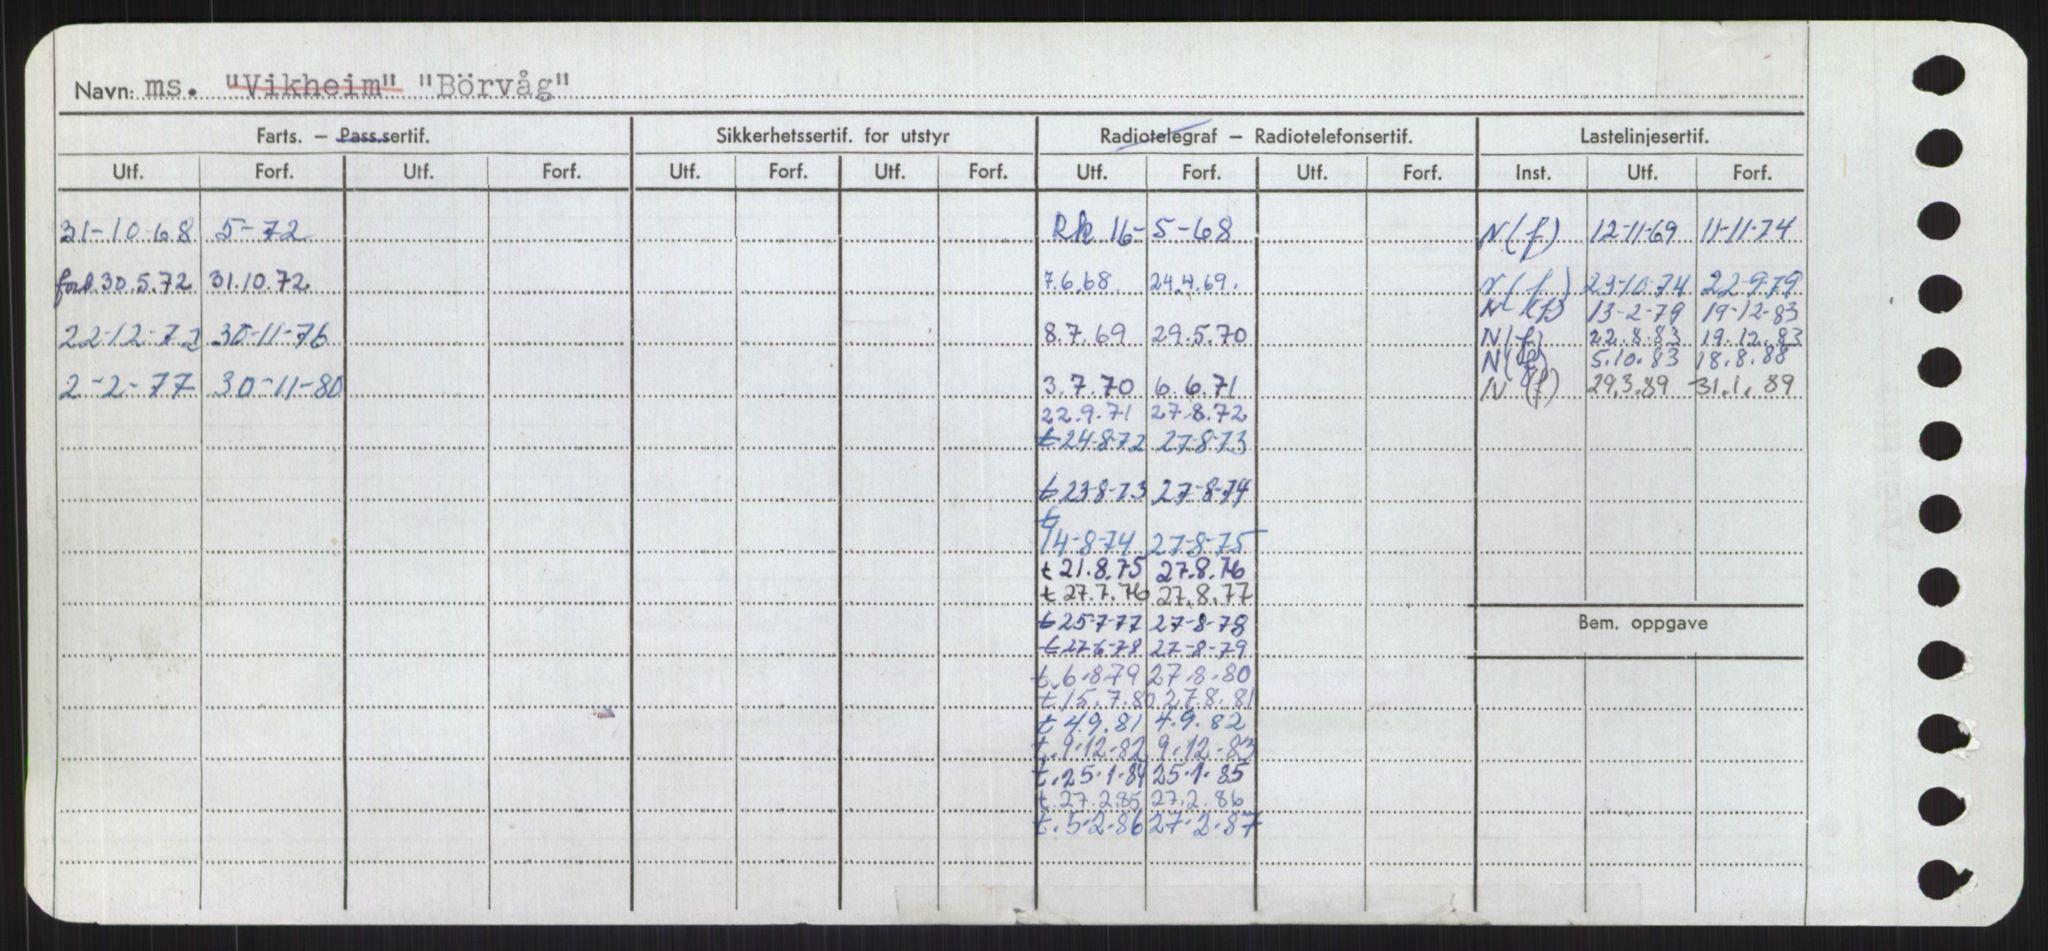 Navn: ms. "Vikheim" "Börvåg"
Farts. — Pass.sertif. Sikkerhetssertif. for utstyr Radiotelegraf — Radiotelefonsertif. Lastelinjesertif.
Utf. Forf. Utf. Forf. Utf. Forf. Utf. Forf. Utf. Forf. Utf. Forf. Inst. Utf. Forf.
31-10-68 5-72 Rk 16-5-68 N(f) 12-11-69 11-11-74
forl. 30.5.72 31.10.72 7.6.68 24.4.69. N(f) 23-10-74 22-9-79
N(f) 13-2-79 19-12-83
22-12-72 30-11-76 8.7.69 29.5.70 N(f) 22.8.83 19.12.83
N(f) 5.10.83 18.8.88
2-2-77 30-11-80 3.7.70 6.6.71 N(f) 29.3.89 31.1.89
22.9.71 27.8.72
t 24-8-72 27-8-73
t 23-8-73 27-8-74
t
14-8-74 27-8-75
t 21.8.75 27.8.76
t 27.7.76 27.8.77
t 25-7-77 27-8-78
t 27-6-78 27-8-79
t.6.8.79 27.8.80
t.15.7.80 27.8.81
t 4.9.81 4.9.82
t.9.12.82 9.12.83
t.25.1.84 25.1.85
t.27.2.85 27.2.86
t.5.2.86 27.2.87
Bem. oppgave